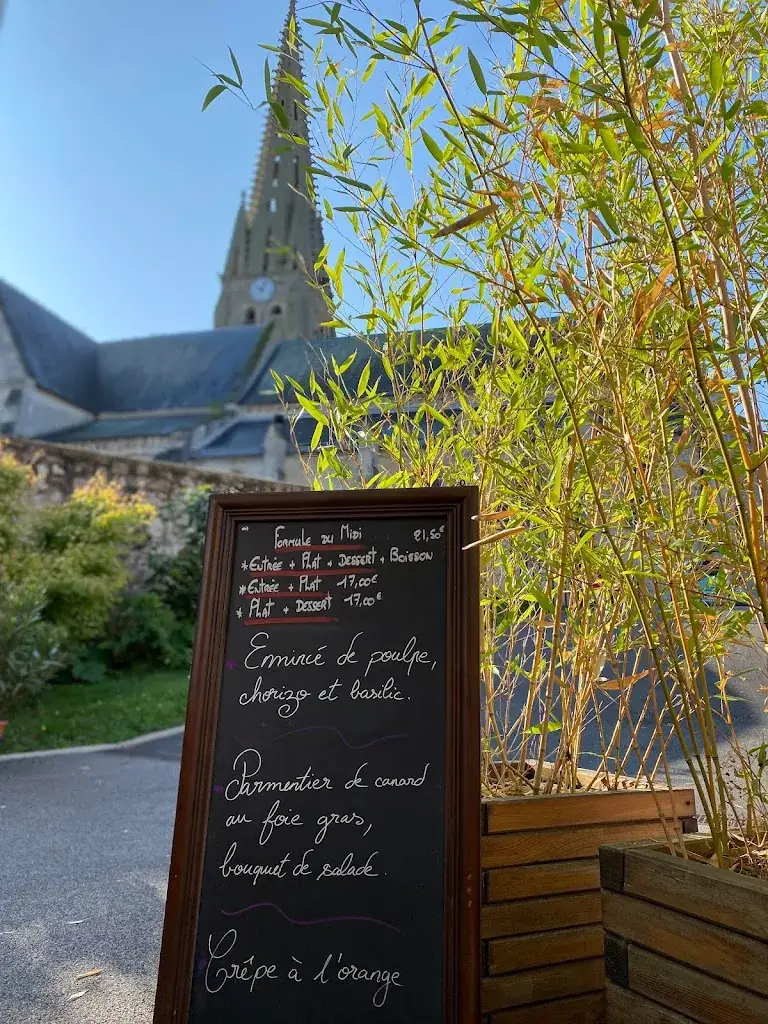 Formule du Midi 21,50€
* Entrée + Plat + Dessert + Boisson
* Entrée + Plat 17,00€
* Plat + Dessert 17,00€
Emincé de poulpe,
chorizo et basilic.
Parmentier de canard
au foie gras,
bouquet de salade.
Crêpe à l'orange